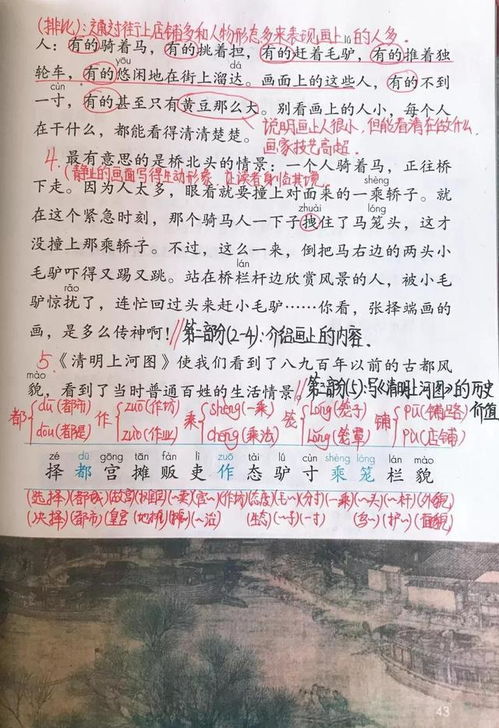 (排比):通过街上店铺多和人物形态多来表现画上的人多.
人：有的骑着马，有的挑着担，有的赶着毛驴，有的推着独
yōu dá
轮车，有的悠闲地在街上溜达。画面上的这些人，有的不到
cùn
一寸，有的甚至只有黄豆那么大。别看画上的人小，每个人
在干什么，都能看得清清楚楚。
说明画上人很小,但能看清在做什么.
画家技艺高超.
4. 最有意思的是桥北头的情景：一个人骑着马，正往桥
(静止的画面写得生动形象,让读者身临其境.
shèng
下走。因为人太多，眼看就要撞上对面来的一乘轿子。就
zhuài lóng
在这个紧急时刻，那个骑马人一下子拽住了马笼头，这才
没撞上那乘轿子。不过，这么一来，倒把马右边的两头小
lán
毛驴吓得又踢又跳。站在桥栏杆边欣赏风景的人，被小毛
rǎo
驴惊扰了，连忙回过头来赶小毛驴……你看，张择端画的
画，是多么传神啊！
//第二部分(2-4):介绍画上的内容.
5. 《清明上河图》使我们看到了八九百年以前的古都风
mào
貌，看到了当时普通百姓的生活情景。
//第三部分(5):写《清明上河图》的历史
价值
都 dū(都市) 作 zuō(作坊) 乘 shèng(一乘) 笼 lóng(笼子) 铺 pū(铺路)
dōu(都是) zuò(作业) chéng(乘法) lǒng(笼罩) pù(店铺)
zé dū gōng tān fàn lì zuō tài lú cùn shèng lóng lán mào
择 都 宫 摊 贩 吏 作 态 驴 寸 乘 笼 栏 貌
(选择)(都城)(故宫)(~卖)(官~)(作坊)(态度)(毛~)(分寸)(一乘)(~头)(~杆)(外貌)
(决择)(都市)(皇宫)(地摊)(~治)
43